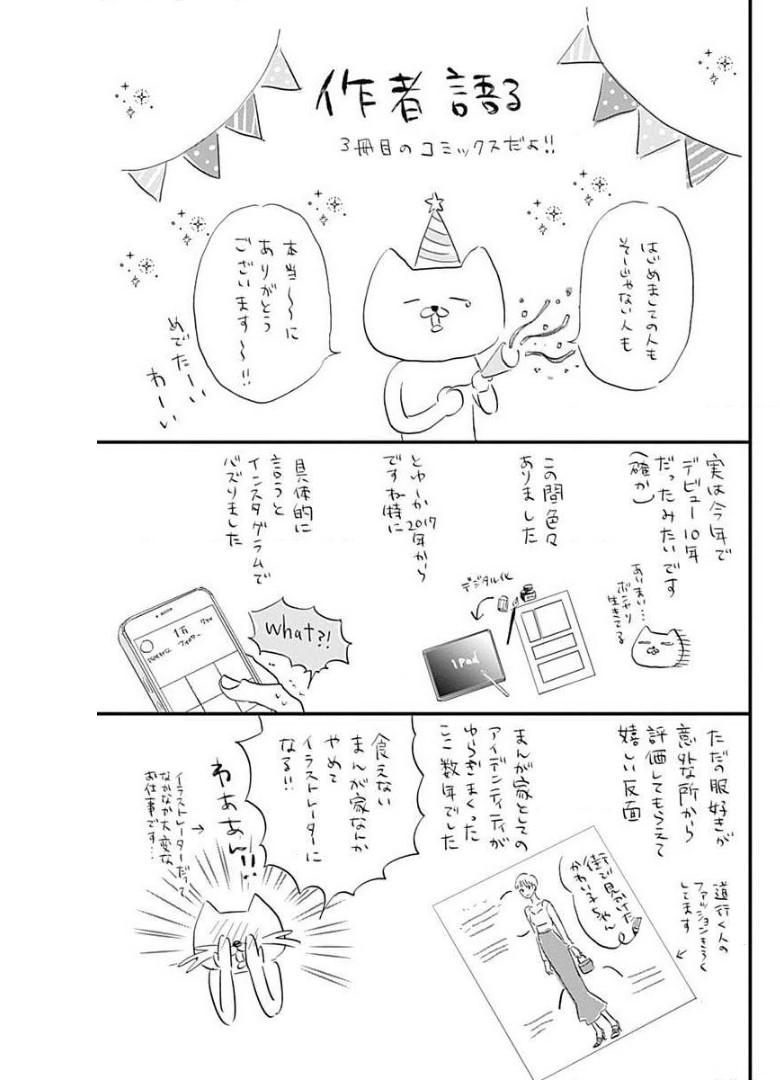 作者語る
3冊目のコミックスだよ!!
はじめましての人も
そーじゃない人も
本当〜〜に
ありがとう
ございます〜〜!!
めでたーい
わーい
実は今年で
デビュー10年
だったみたいです
(確か)
あいまい…
ボンヤリ
生きてる
この間色々
ありました
デジタル化
iPad
とゆーか2017年から
ですね特に
具体的に
言うと
インスタグラムで
バズりました
What?!
1万
フォロワー
ただの服好きが
意外な所から
評価してもらえて
嬉しい反面
道行く人の
ファッションきろく
してます
街で見かけた
かわい子ちゃん
まんが家としての
アイデンティティが
ゆらぎまくった
ここ数年でした
食えない
まんが家なんか
やめて
イラストレーターに
なる!!
わああん!!
イラストレーターだって
なかなか大変な
お仕事です…